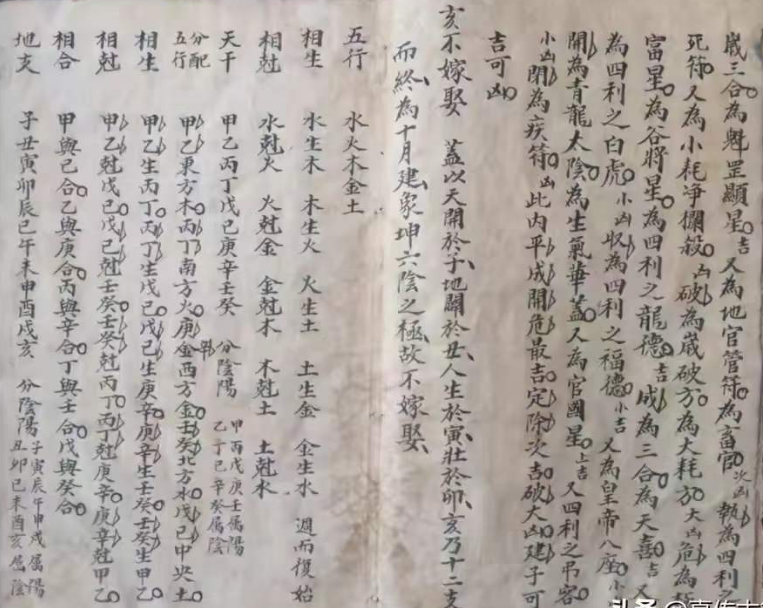 歲三合為魁罡顯星吉又為地官管符為畜官次凶執為四利之
死符又為小耗凈攔殺凶破為歲破方為大耗方大凶危為極
富星為谷將星為四利之龍德吉成為三合為天喜吉又
為四利之白虎小凶收為四利之福德小吉又為皇帝八座小
開為青龍太陰為生氣華蓋又為官國星上吉又四利之吊客
小凶閉為疾符凶此內平成開危最吉定除次吉破大凶建子可
吉可凶
亥不嫁娶 蓋以天開於子地闢於丑人生於寅壯於卯亥乃十二支
而終為十月建象坤六陰之極故不嫁娶
五行 水火木金土
相生 水生木 木生火 火生土 土生金 金生水 週而復始
相尅 水尅火 火尅金 金尅木 木尅土 土尅水
天干 甲乙丙丁戊己庚辛壬癸 分陰陽 甲丙戊庚壬屬陽 乙丁己辛癸屬陰
分配五行 甲乙東方木丙丁南方火庚辛西方金壬癸北方水戊己中央土
相生 甲乙生丙丁丙丁生戊己戊己生庚辛庚辛生壬癸壬癸生甲乙
相尅 甲乙尅戊己戊己尅壬癸壬癸尅丙丁丙丁尅庚辛庚辛尅甲乙
相合 甲與己合乙與庚合丙與辛合丁與壬合戊與癸合
地支 子丑寅卯辰巳午未申酉戌亥 分陰陽 子寅辰午申戌屬陽 丑卯巳未酉亥屬陰